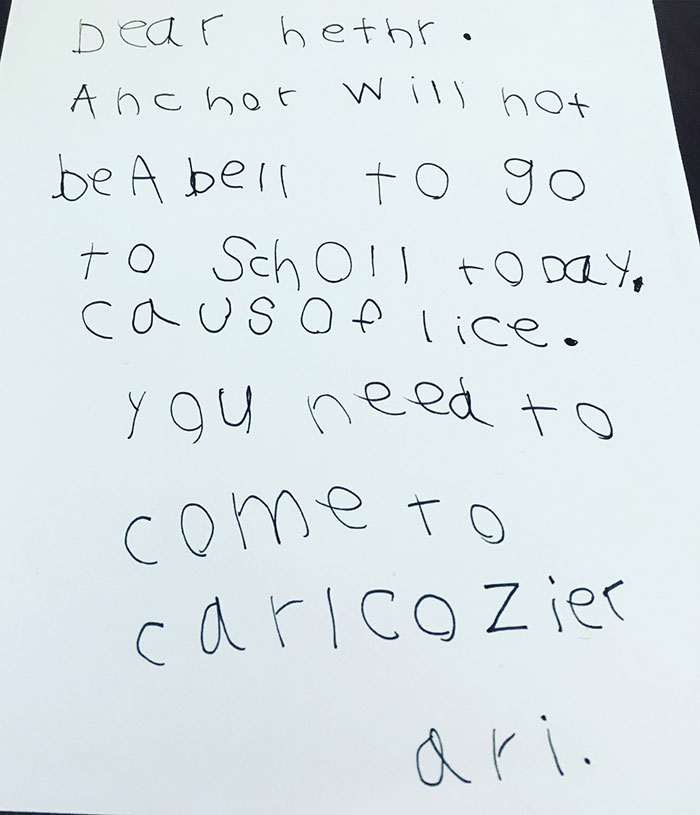 Dear hethr.
Anchor will not
beAbell to go
to SchOll toDay.
causOf lice.
you need to
come to
carlcozier
ari.